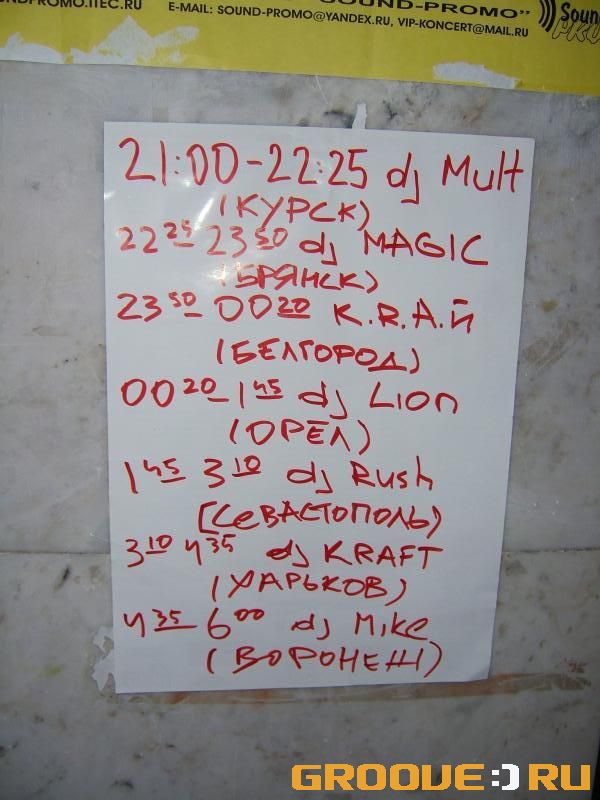 SOUNDPROMO.ITEC.RU
SOUND-PROMO"
E-MAIL: SOUND-PROMO@YANDEX.RU, VIP-KONCERT@MAIL.RU
Sound
PRO
21:00-22:25 dj Mult
(КУРСК)
22 25 23 50 dj MAGIC
(БРЯНСК)
23 50 00 20 K.R.A.й
(БЕЛГОРОД)
00 20 - 1 45 dj Lion
(ОРЁЛ)
1 45 3 10 dj Rush
(СеВАСТОПОЛЬ)
3 10 4 35 dj KRAFT
(ХАРЬКОВ)
4 35 - 6 00 dj Mike
(ВОРОНЕЖ)
GROOVE:)RU